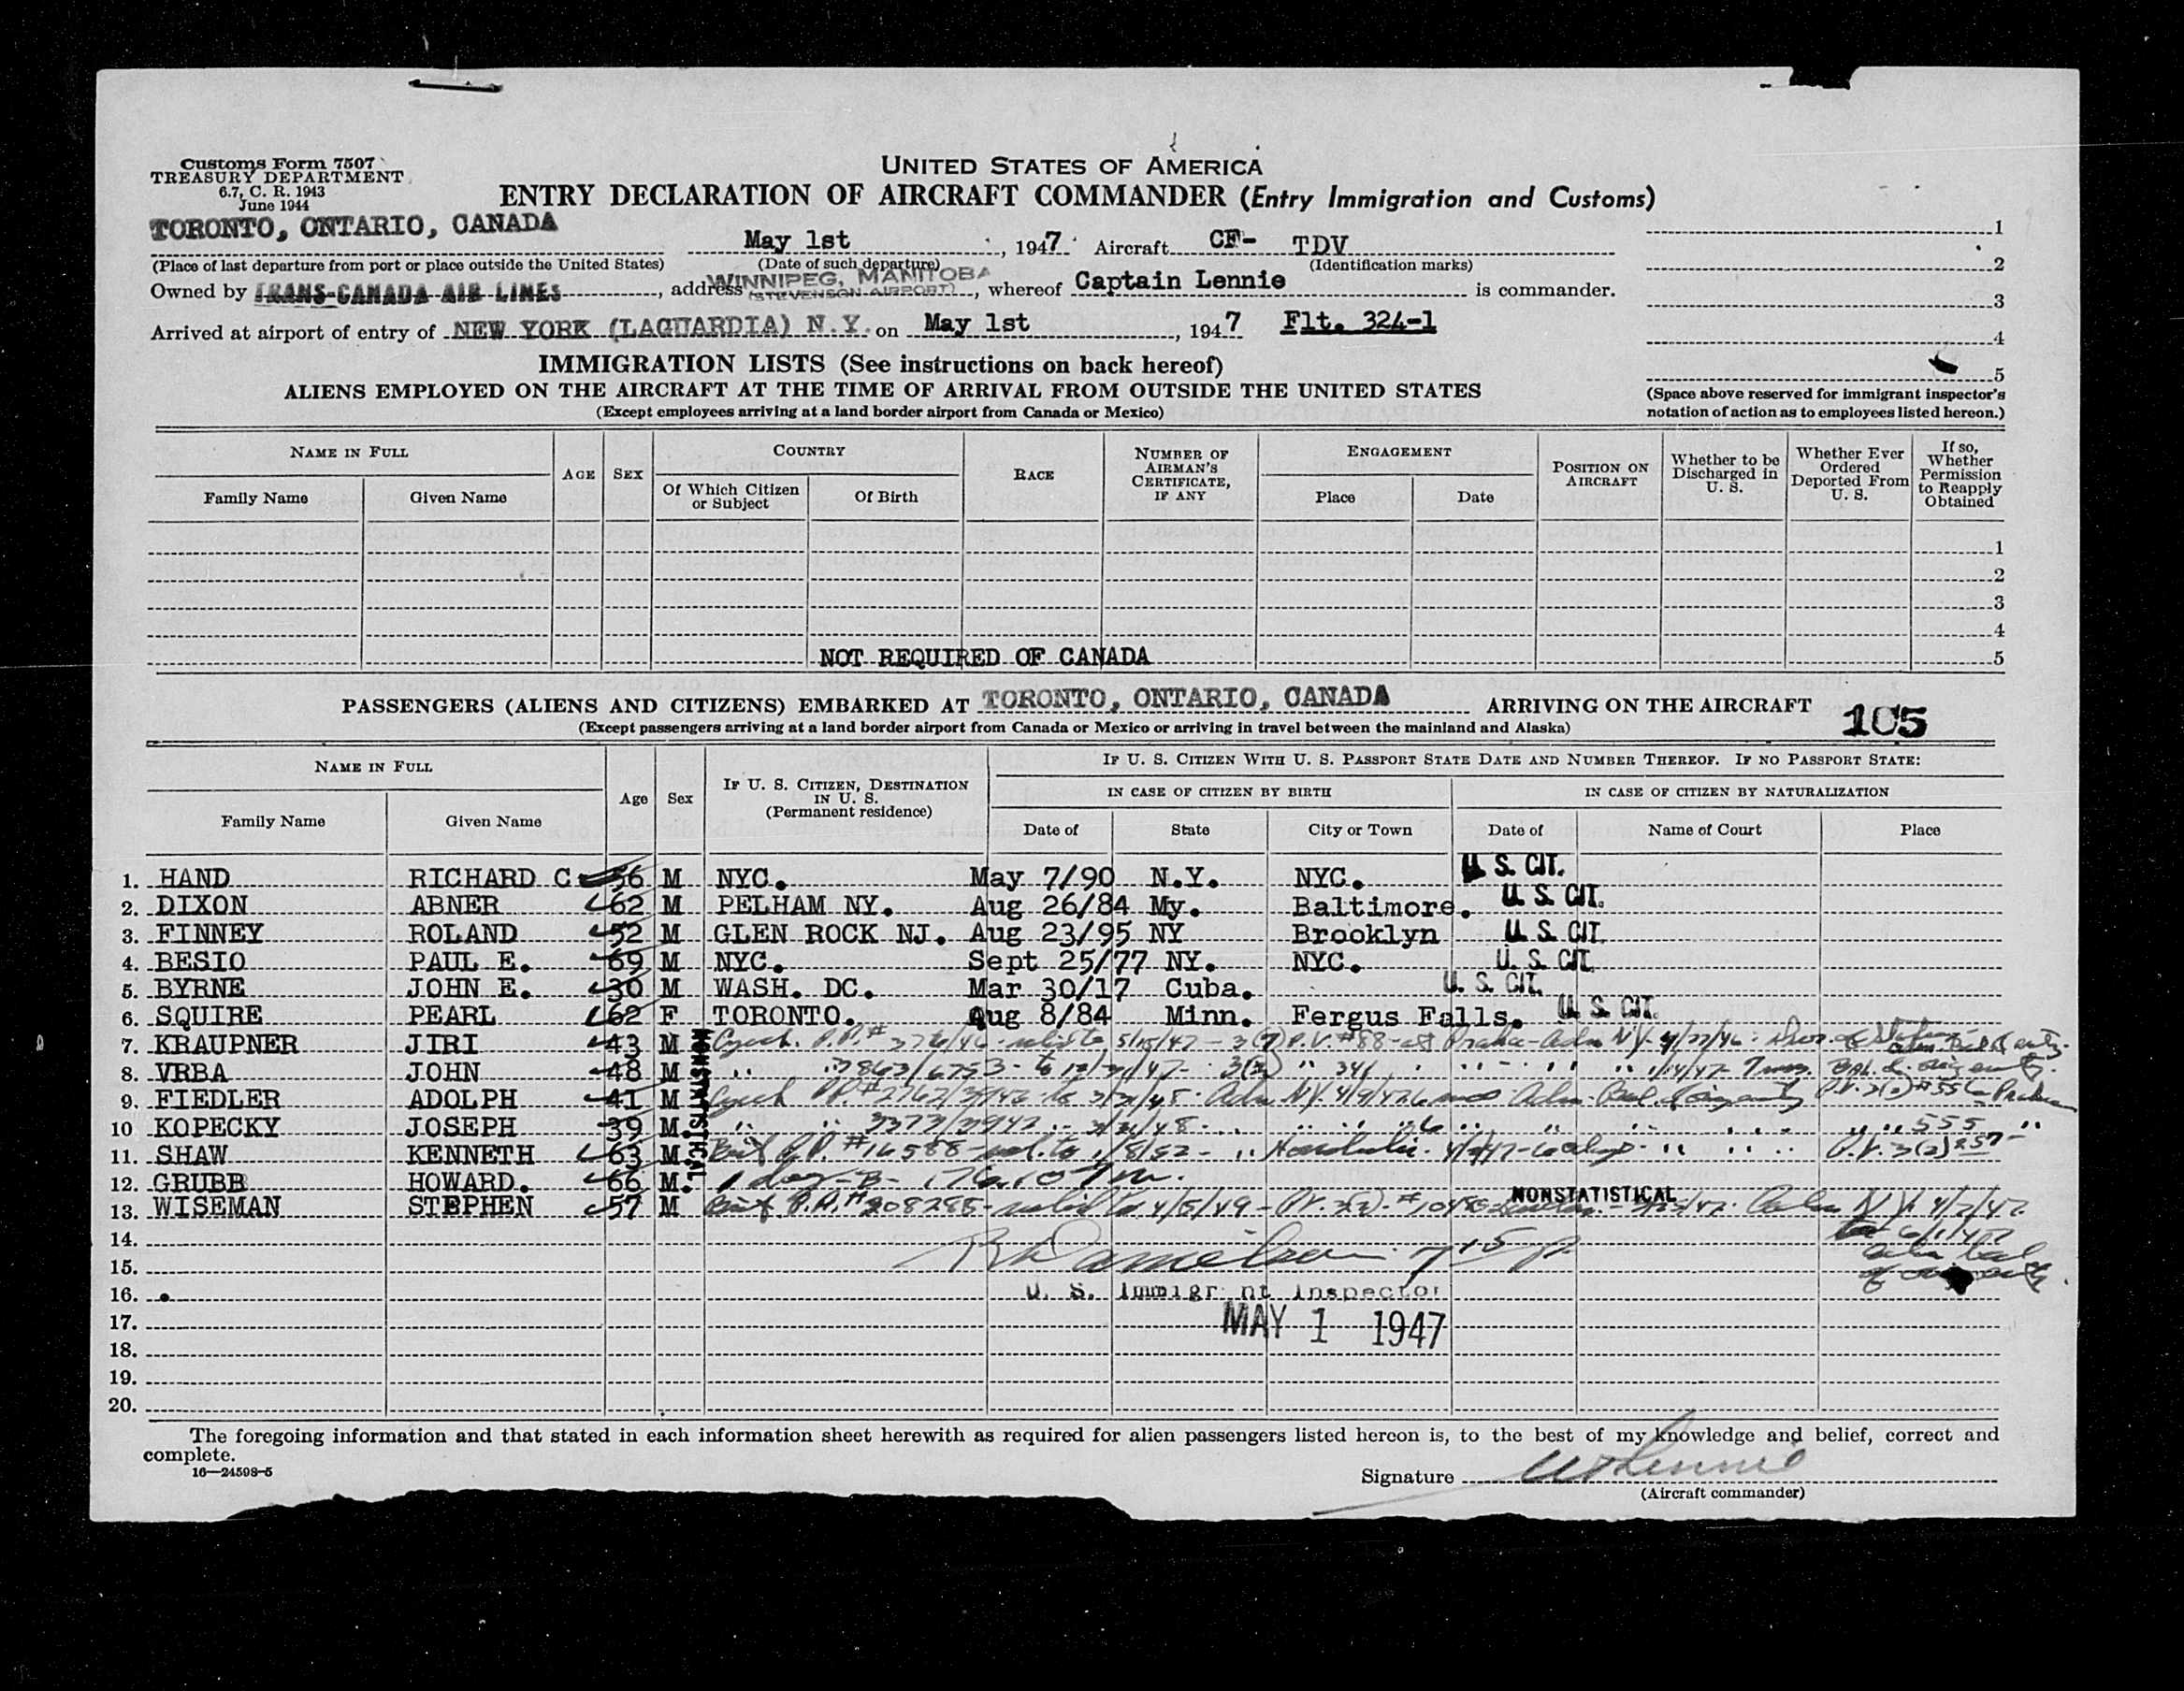 Customs Form 7507
TREASURY DEPARTMENT
6.7, C. R. 1943
June 1944
UNITED STATES OF AMERICA
ENTRY DECLARATION OF AIRCRAFT COMMANDER (Entry Immigration and Customs)
TORONTO, ONTARIO, CANADA May 1st, 1947 Aircraft CF- TDV
(Place of last departure from port or place outside the United States) (Date of such departure) (Identification marks)
WINNIPEG, MANITOBA
Owned by TRANS-CANADA AIR LINES, address (STEVENSON AIRPORT), whereof Captain Lennie is commander.
Arrived at airport of entry of NEW YORK (LAGUARDIA) N.Y. on May 1st, 1947 Flt. 324-1
1
2
3
4
5
(Space above reserved for immigrant inspector's notation of action as to employees listed hereon.)
IMMIGRATION LISTS (See instructions on back hereof)
ALIENS EMPLOYED ON THE AIRCRAFT AT THE TIME OF ARRIVAL FROM OUTSIDE THE UNITED STATES
(Except employees arriving at a land border airport from Canada or Mexico)
NAME IN FULL AGE SEX COUNTRY RACE NUMBER OF AIRMAN'S CERTIFICATE, IF ANY ENGAGEMENT POSITION ON AIRCRAFT Whether to be Discharged in U. S. Whether Ever Ordered Deported From U. S. If so, Whether Permission to Reapply Obtained
Family Name Given Name Of Which Citizen or Subject Of Birth Place Date
1
2
3
4
NOT REQUIRED OF CANADA 5
PASSENGERS (ALIENS AND CITIZENS) EMBARKED AT TORONTO, ONTARIO, CANADA ARRIVING ON THE AIRCRAFT 105
(Except passengers arriving at a land border airport from Canada or Mexico or arriving in travel between the mainland and Alaska)
NAME IN FULL Age Sex IF U. S. CITIZEN, DESTINATION IN U. S. (Permanent residence) IF U. S. CITIZEN WITH U. S. PASSPORT STATE DATE AND NUMBER THEREOF. IF NO PASSPORT STATE:
IN CASE OF CITIZEN BY BIRTH IN CASE OF CITIZEN BY NATURALIZATION
Family Name Given Name Date of State City or Town Date of Name of Court Place
1. HAND RICHARD C 56 M NYC. May 7/90 N.Y. NYC. U. S. CIT.
2. DIXON ABNER 62 M PELHAM NY. Aug 26/84 My. Baltimore. U. S. CIT.
3. FINNEY ROLAND 52 M GLEN ROCK NJ. Aug 23/95 NY Brooklyn U. S. CIT.
4. BESIO PAUL E. 69 M NYC. Sept 25/77 NY. NYC. U. S. CIT.
5. BYRNE JOHN E. 30 M WASH. DC. Mar 30/17 Cuba. U. S. CIT.
6. SQUIRE PEARL 62 F TORONTO. Aug 8/84 Minn. Fergus Falls. U. S. CIT.
NONSTATISTICAL
7. KRAUPNER JIRI 43 M Czech. P.P.# 376/46 - valid to 5/15/47
8. VRBA JOHN 48 M
9. FIEDLER ADOLPH 41 M Czech
10 KOPECKY JOSEPH 39 M. 555
11. SHAW KENNETH 63 M. Brit P.P. #16588 Honolulu
12. GRUBB HOWARD. 66 M.
13. WISEMAN STEPHEN 57 M Brit P.P.# valid to 4/5/49 NONSTATISTICAL Adm N.Y. 4/2/47
14. to 6/1/47
15.
16. U. S. Immigrant Inspector
17. MAY 1 1947
18.
19.
20.
The foregoing information and that stated in each information sheet herewith as required for alien passengers listed hereon is, to the best of my knowledge and belief, correct and
complete.
16—24598-5
Signature Lennie
(Aircraft commander)